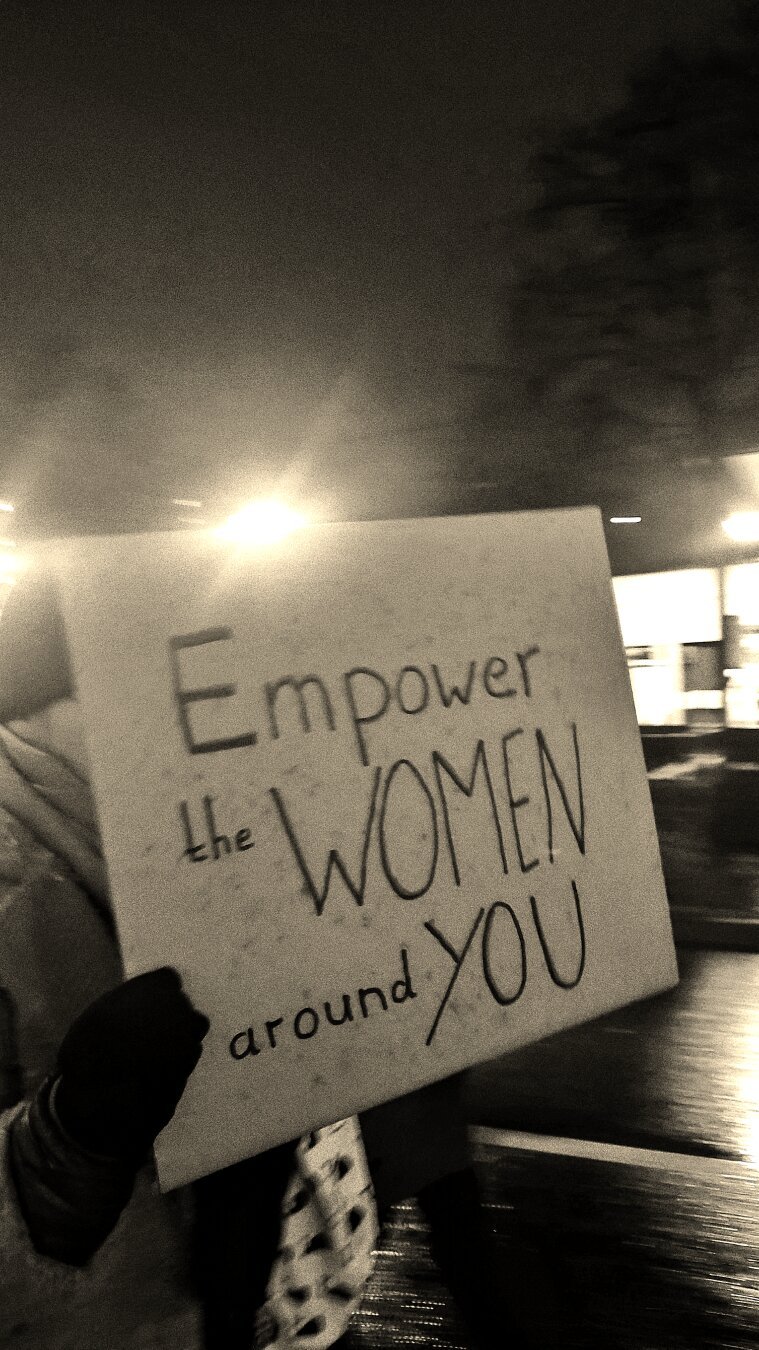 Empower
the WOMEN
around YOU